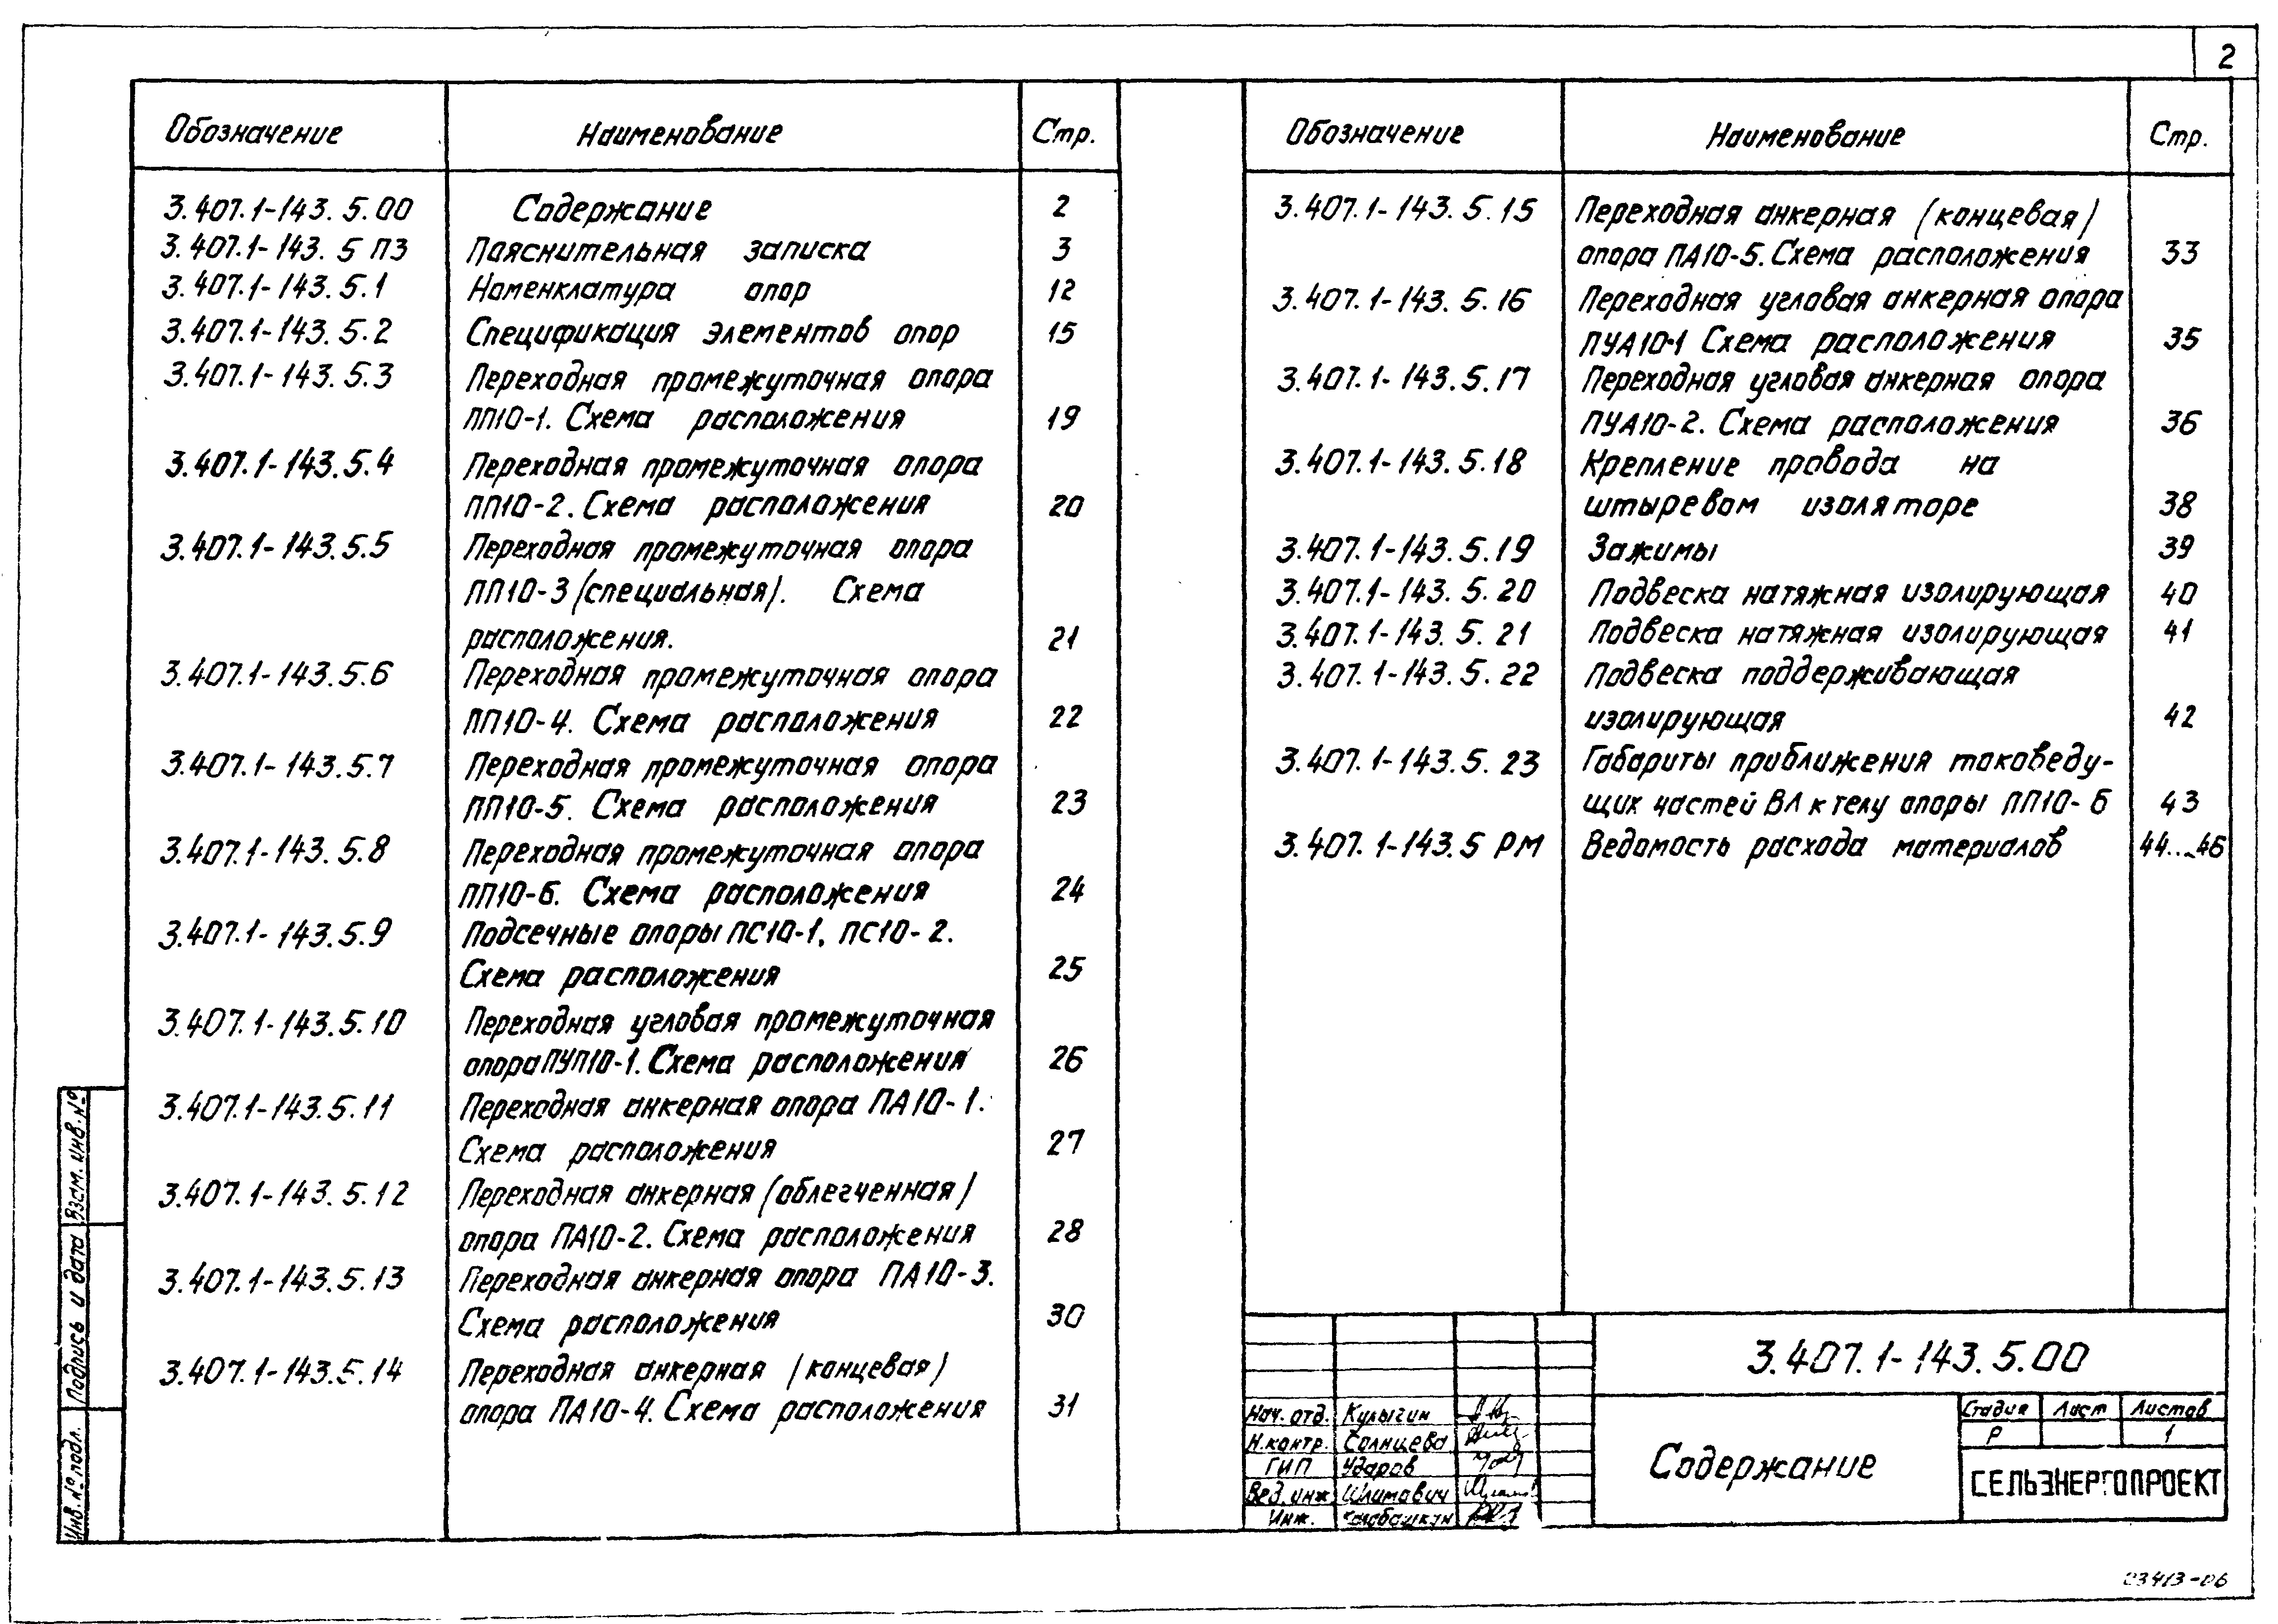 2
Обозначение Наименование Стр.
3.407.1-143.5.00 Содержание 2
3.407.1-143.5 ПЗ Пояснительная записка 3
3.407.1-143.5.1 Номенклатура опор 12
3.407.1-143.5.2 Спецификация элементов опор 15
3.407.1-143.5.3 Переходная промежуточная опора
ПП10-1. Схема расположения 19
3.407.1-143.5.4 Переходная промежуточная опора
ПП10-2. Схема расположения 20
3.407.1-143.5.5 Переходная промежуточная опора
ПП10-3 (специальная). Схема
расположения. 21
3.407.1-143.5.6 Переходная промежуточная опора
ПП10-4. Схема расположения 22
3.407.1-143.5.7 Переходная промежуточная опора
ПП10-5. Схема расположения 23
3.407.1-143.5.8 Переходная промежуточная опора
ПП10-6. Схема расположения 24
3.407.1-143.5.9 Подсечные опоры ПС10-1, ПС10-2.
Схема расположения 25
3.407.1-143.5.10 Переходная угловая промежуточная
опора ПУП10-1. Схема расположения 26
3.407.1-143.5.11 Переходная анкерная опора ПА10-1.
Схема расположения 27
3.407.1-143.5.12 Переходная анкерная (облегченная)
опора ПА10-2. Схема расположения 28
3.407.1-143.5.13 Переходная анкерная опора ПА10-3.
Схема расположения 30
3.407.1-143.5.14 Переходная анкерная (концевая)
опора ПА10-4. Схема расположения 31
Обозначение Наименование Стр.
3.407.1-143.5.15 Переходная анкерная (концевая)
опора ПА10-5. Схема расположения 33
3.407.1-143.5.16 Переходная угловая анкерная опора
ПУА10-1 Схема расположения 35
3.407.1-143.5.17 Переходная угловая анкерная опора
ПУА10-2. Схема расположения 36
3.407.1-143.5.18 Крепление провода на
штыревом изоляторе 38
3.407.1-143.5.19 Зажимы 39
3.407.1-143.5.20 Подвеска натяжная изолирующая 40
3.407.1-143.5.21 Подвеска натяжная изолирующая 41
3.407.1-143.5.22 Подвеска поддерживающая
изолирующая 42
3.407.1-143.5.23 Габариты приближения токоведу-
щих частей ВЛ к телу опоры ПП10-6 43
3.407.1-143.5 РМ Ведомость расхода материалов 44...46
3.407.1-143.5.00
Нач. отд. Кулыгин
Н.контр. Солнцева
ГИП Ударов
Вед. инж. Шлимович
Инж. Калабашкин
Содержание
Стадия Лист Листов
Р 1
СЕЛЬЭНЕРГОПРОЕКТ
Взам. инв. №
Подпись и дата
Инв. № подл.
03413-06